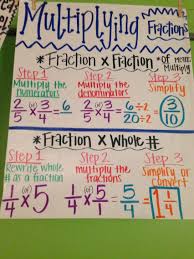 Multiplying Fractions
*Fraction x Fraction *Of means Multiply
Step 1 Step 2 Step 3
Multiply the numerators Multiply the denominators Simplify
2/5 x 3/4 = 6 2/5 (of) x 3/4 = 6/20 6÷2/20÷2 = 3/10
*Fraction x Whole #
Step 1 Step 2 Step 3
Rewrite whole # as a fraction multiply the fractions Simplify or convert
1/4 (of) x 5 1/4 x 5/1 = 5/4 5/4 = 1 1/4